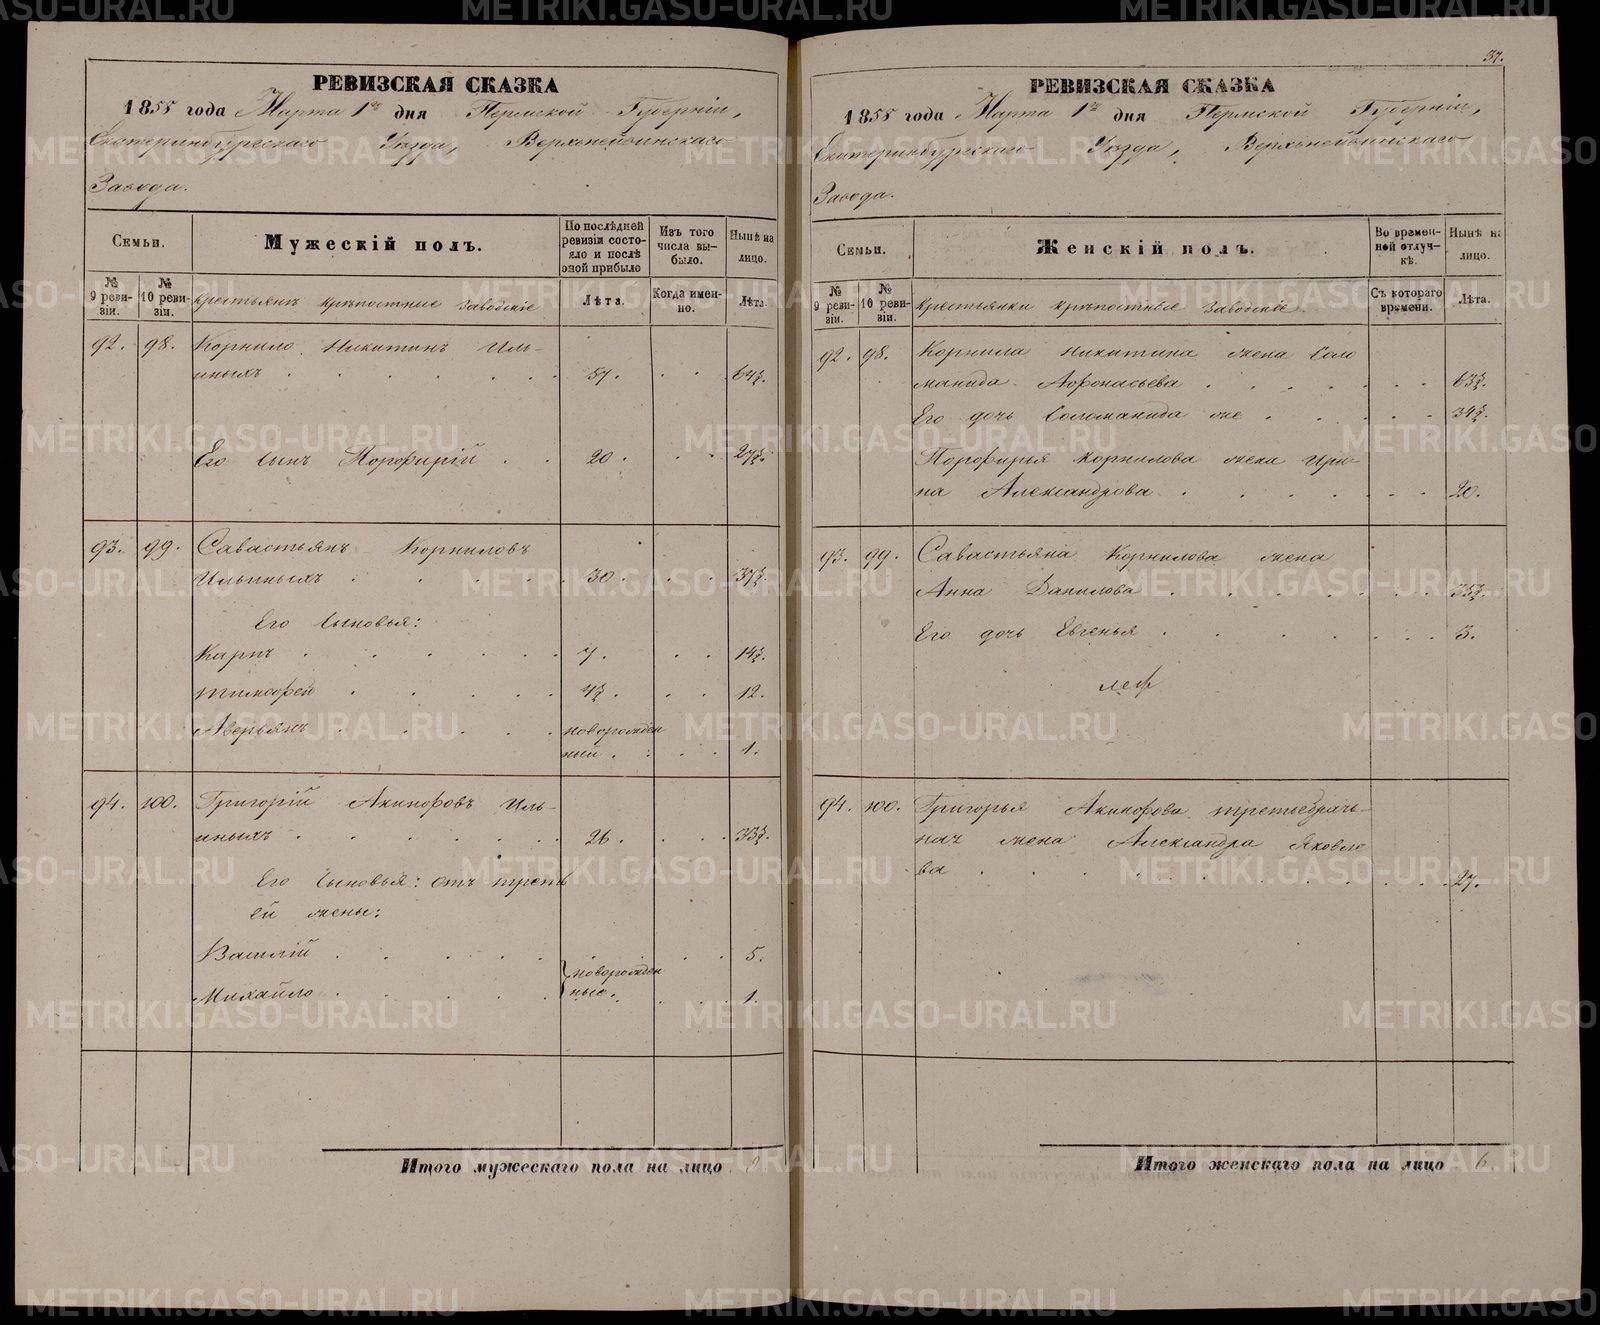 37.
РЕВИЗСКАЯ СКАЗКА
1858 года Марта 1го дня Пермской Губерніи,
Екатеринбургскаго Уезда, Верхнейвинскаго
Завода.
Семьи.
Мужескій полъ.
По послѣдней ревизіи состояло и послѣ оной прибыло
Изъ того числа выбыло.
Нынѣ на лицо.
№ 9 ревизіи.
№ 10 ревизіи.
Крестьянъ крѣпостные заводскіе
Лѣта.
Когда именно.
Лѣта.
92. 98. Корнило Никитинъ Иль-
иныхъ . 57. 64½.
Его сынъ Порфирій . . 20. 27½.
93. 99. Савастьянъ Корниловъ
Ильиныхъ . 30. 37½.
Его сыновья:
Карпъ . 7. 14½.
Тимофей . 4½. 12.
Аверьянъ . новорожден
ный . 1.
94. 100. Григорій Акинфовъ Иль-
иныхъ . 26. 33½.
Его сыновья: отъ треть
ей жены:
Василій . 5.
Михайло . новорожден
ные. 1.
Итого мужескаго пола на лицо
РЕВИЗСКАЯ СКАЗКА
1858 года Марта 1го дня Пермской Губерніи,
Екатеринбургскаго Уезда, Верхнейвинскаго
Завода.
Семьи.
Женскій полъ.
Во временной отлучкѣ.
Нынѣ на лицо.
№ 9 ревизіи.
№ 10 ревизіи.
Крестьянки крѣпостные заводскіе
Съ котораго времени.
Лѣта.
92. 98. Корнила Никитина жена Соло
манида Афонасьева . 63½.
Его дочь Соломанида же . 34½.
Порфирья Корнилова жена Ири-
на Александрова . 20.
93. 99. Савастьяна Корнилова жена
Анна Данилова . 35½.
Его дочь Евгенья . 3.
94. 100. Григорья Акинфова третьебрачь-
ная жена Александра Яковле
ва . 27.
Итого женскаго пола на лицо 6.
METRIKI.GASO-URAL.RU